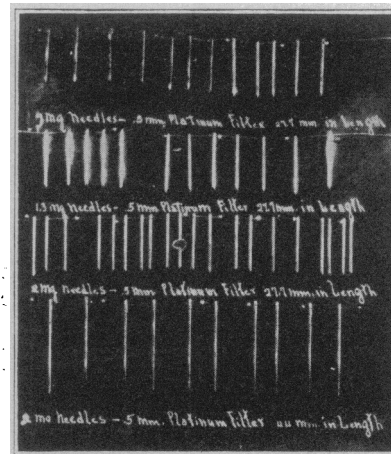 mg Needles - .5 mm. Platinum Filter 27.7 mm. in Length
1.3 mg Needles - .5 mm Platinum Filter 27.7 mm. in Length
2 mg Needles - .5 mm Platinum Filter 27.7 mm. in Length
2 mg Needles - .5 mm. Platinum Filter mm. in Length